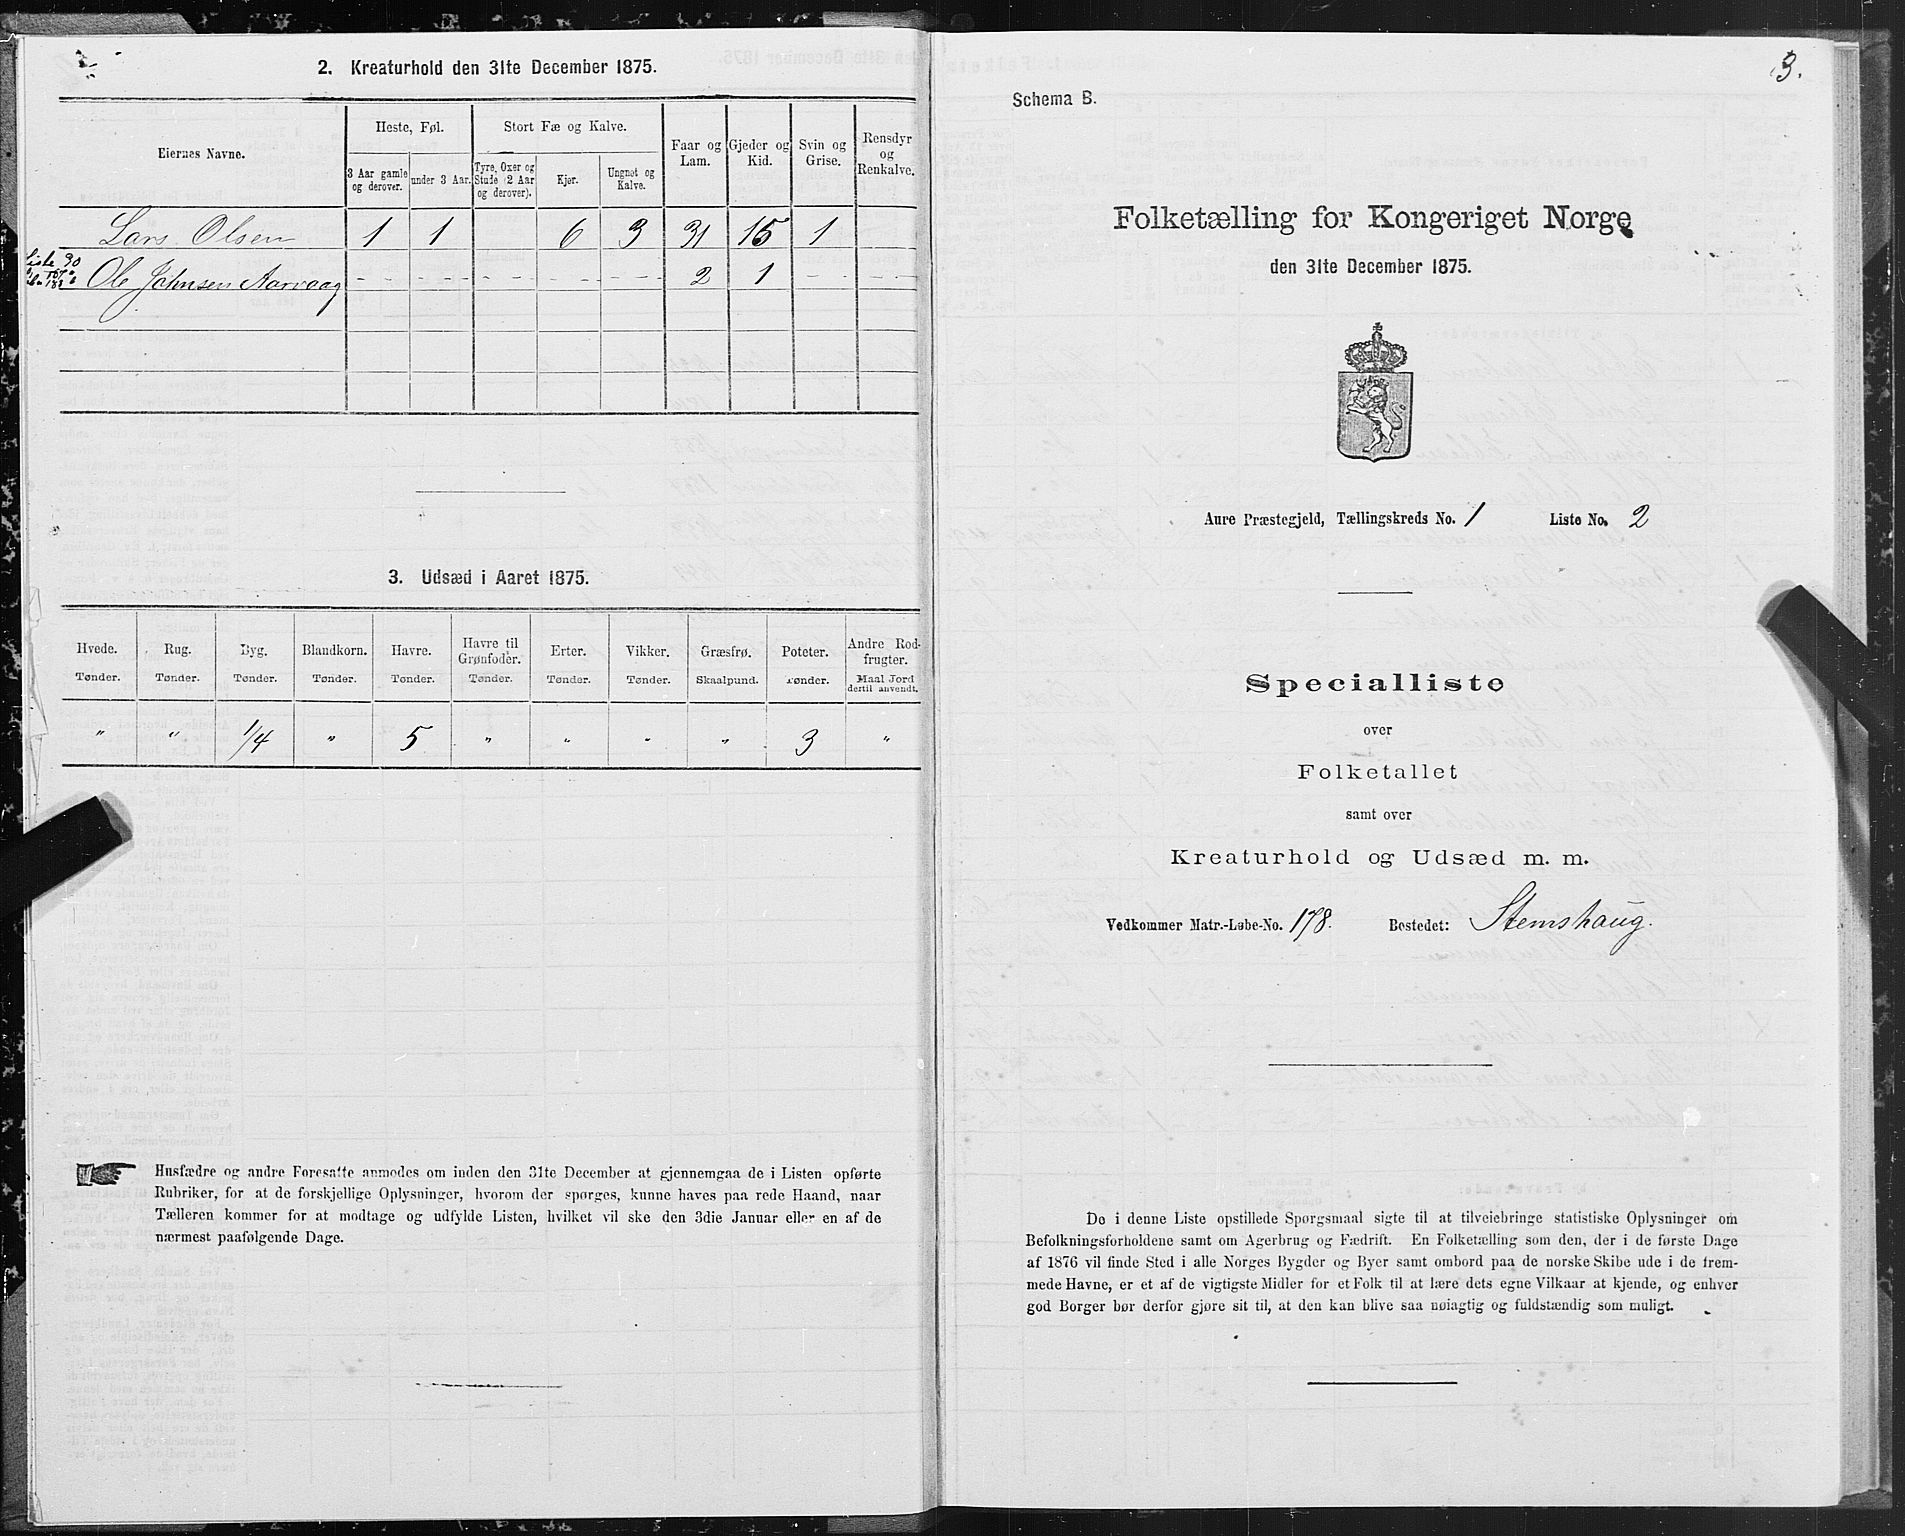 2. Kreaturhold den 31te December 1875.
Eiernes Navne.
Heste, Føl.
Stort Fæ og Kalve.
Faar og Lam.
Gjeder og Kid.
Svin og Grise.
Rensdyr og Renkalve.
3 Aar gamle og derover.
under 3 Aar.
Tyre, Oxer og Stude (2 Aar og derover).
Kjør.
Ungnøt og Kalve.
Lars Olsen 1 1 6 3 31 15 1
Liste 90
Ole Johnsen Aarvaag - - - - - 2 1 - -
3. Udsæd i Aaret 1875.
Hvede. Rug. Byg. Blandkorn. Havre. Havre til Grønfoder. Erter. Vikker. Græsfrø. Poteter. Andre Rodfrugter.
Tønder. Tønder. Tønder. Tønder. Tønder. Tønder. Tønder. Tønder. Skaalpund. Tønder. Maal Jord dertil anvendt.
" " 1/4 " 5 " " " " 3 "
Husfædre og andre Foresatte anmodes om inden den 31te December at gjennemgaa de i Listen opførte
Rubriker, for at de forskjellige Oplysninger, hvorom der spørges, kunne haves paa rede Haand, naar
Tælleren kommer for at modtage og udfylde Listen, hvilket vil ske den 3die Januar eller en af de
nærmest paafølgende Dage.
3.
Schema B.
Folketælling for Kongeriget Norge
den 31te December 1875.
Aure Præstegjeld, Tællingskreds No. 1 Liste No. 2
Specialliste
over
Folketallet
samt over
Kreaturhold og Udsæd m. m.
Vedkommer Matr.-Løbe-No. 178. Bostedet: Stemshaug.
De i denne Liste opstillede Spørgsmaal sigte til at tilveiebringe statistiske Oplysninger om
Befolkningsforholdene samt om Agerbrug og Fædrift. En Folketælling som den, der i de første Dage
af 1876 vil finde Sted i alle Norges Bygder og Byer samt ombord paa de norske Skibe ude i de frem-
mede Havne, er et af de vigtigste Midler for et Folk til at lære dets egne Vilkaar at kjende, og enhver
god Borger bør derfor gjøre sit til, at den kan blive saa nøiagtig og fuldstændig som muligt.